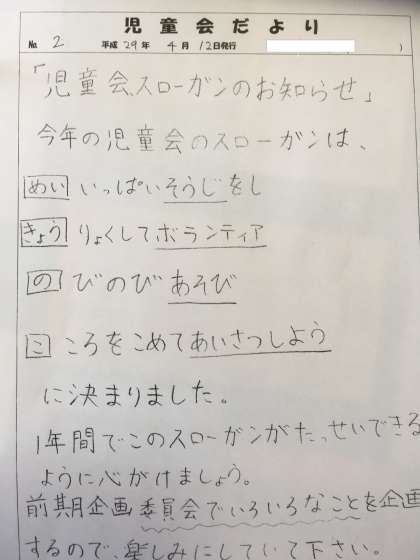 児童会だより
No. 2 平成 29 年 4 月 12 日発行 )
「児童会スローガンのお知らせ」
今年の児童会のスローガンは、
めい いっぱいそうじをし
きょう りょくしてボランティア
の びのびあそび
こ ころをこめてあいさつしよう
に決まりました。
1年間でこのスローガンがたっせいできる
ように心がけましょう。
前期企画委員会でいろいろなことを企画
するので、楽しみにしていて下さい。